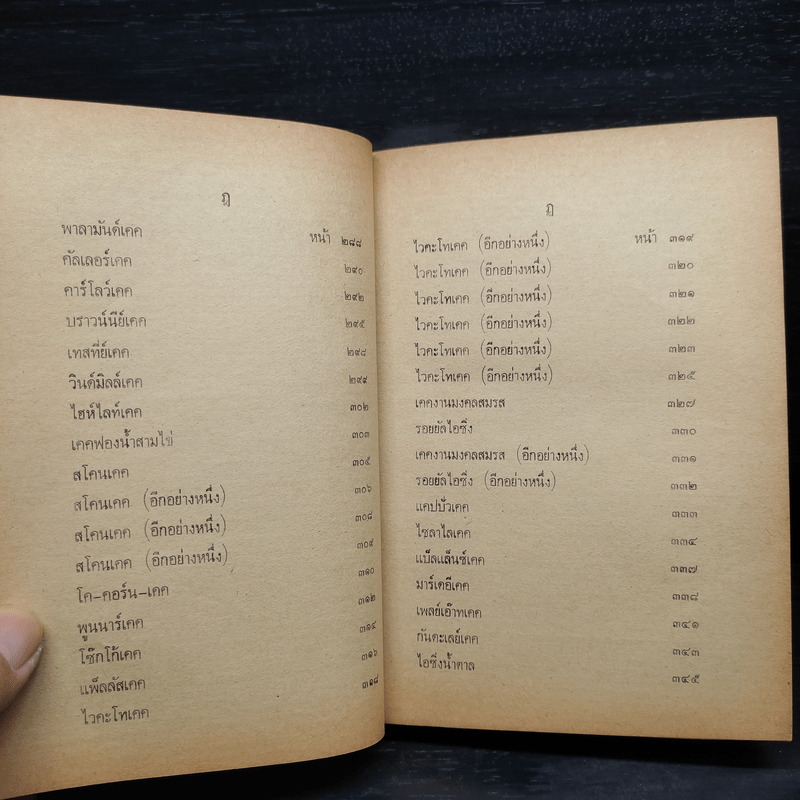 ฎ
พาลามันด์เคค หน้า ๒๘๘
คัลเลอร์เคค ๒๙๐
คาร์โลว์เคค ๒๙๒
บราวน์นีย์เคค ๒๙๕
เทสที่ย์เคค ๒๙๘
วินด์มิลล์เคค ๒๙๙
ไฮห์ไลท์เคค ๓๐๒
เคคฟองน้ำสามไข่ ๓๐๓
สโคนเคค ๓๐๕
สโคนเคค (อีกอย่างหนึ่ง) ๓๐๖
สโคนเคค (อีกอย่างหนึ่ง) ๓๐๘
สโคนเคค (อีกอย่างหนึ่ง) ๓๐๙
โค-คอร์น-เคค ๓๑๐
พูนนาร์เคค ๓๑๒
โช๊กโก้เคค ๓๑๔
แพ็ลลัสเคค ๓๑๖
ไวคะโทเคค ๓๑๘
ฏ
ไวคะโทเคค (อีกอย่างหนึ่ง) หน้า ๓๑๙
ไวคะโทเคค (อีกอย่างหนึ่ง) ๓๒๐
ไวคะโทเคค (อีกอย่างหนึ่ง) ๓๒๑
ไวคะโทเคค (อีกอย่างหนึ่ง) ๓๒๒
ไวคะโทเคค (อีกอย่างหนึ่ง) ๓๒๓
ไวคะโทเคค (อีกอย่างหนึ่ง) ๓๒๕
เคคงานมงคลสมรส ๓๒๗
รอยยัลไอซิ่ง ๓๓๐
เคคงานมงคลสมรส (อีกอย่างหนึ่ง) ๓๓๑
รอยยัลไอซิ่ง (อีกอย่างหนึ่ง) ๓๓๒
แคปบั่วเคค ๓๓๓
ไซลาไลเคค ๓๓๔
แบ็ลแล็นซ์เคค ๓๓๗
มาร์เคอีเคค ๓๓๘
เพลย์เอ๊าทเคค ๓๔๑
กันคะเลย์เคค ๓๔๓
ไอซิ่งน้ำตาล ๓๔๕